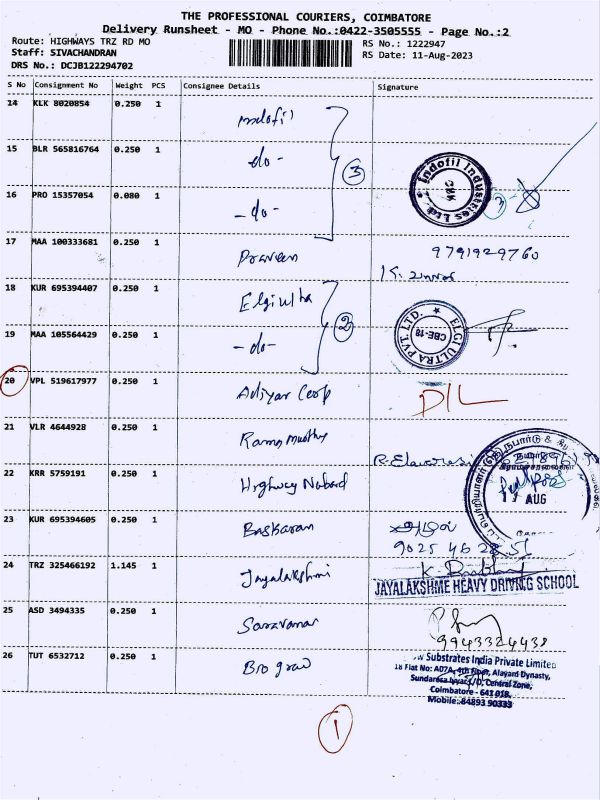 THE PROFESSIONAL COURIERS, COIMBATORE
Delivery Runsheet - MO - Phone No.:0422-3505555 - Page No.:2
Route: HIGHWAYS TRZ RD MO RS No.: 1222947
Staff: SIVACHANDRAN RS Date: 11-Aug-2023
DRS No.: DCJB122294702
S No Consignment No Weight PCS Consignee Details Signature
14 KLK 8020854 0.250 1 Indofil
15 BLR 565816764 0.250 1 -do- ③ Indofil Industries Ltd. CBE
16 PRO 15357054 0.080 1 -do-
17 MAA 100333681 0.250 1 Praveen 9791929760
18 KUR 695394407 0.250 1 Elgi ultra
19 MAA 105564429 0.250 1 -do- ② ELGI ULTRA PVT. LTD. CBE-18
20 VPL 519617977 0.250 1 D/L
21 VLR 4644928 0.250 1 Ramamoorthy
22 KRR 5759191 0.250 1 Highway Nabard AUG
23 KUR 695394605 0.250 1 Baskaran
24 TRZ 325466192 1.145 1 Jayalakshmi
JAYALAKSHME HEAVY DRIVING SCHOOL
25 ASD 3494335 0.250 1 Saravanan
9943324438
26 TUT 6532712 0.250 1 Bro grow
Substrates India Private Limited
18 Flat No: A07A, 4th Floor, Alayard Dynasty,
Central Zone,
Coimbatore - 641 018.
Mobile: 84893 90333
①